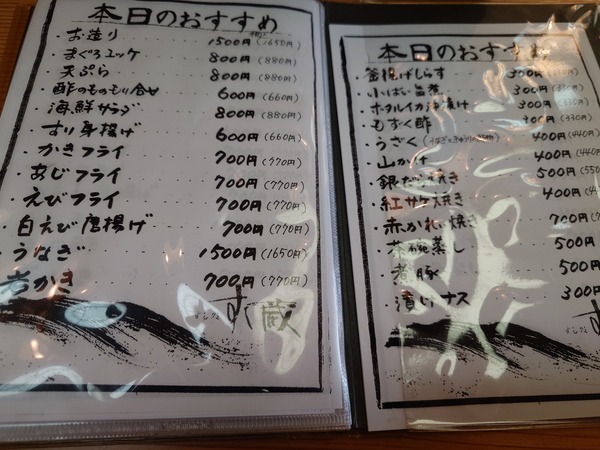 本日のおすすめ
・お造り 1500円(1650円)
・まぐろユッケ 800円(880円)
・天ぷら 800円(880円)
・酢のもの盛合せ 600円(660円)
・海鮮サラダ 800円(880円)
・すり身揚げ 600円(660円)
・かきフライ 700円(770円)
・あじフライ 700円(770円)
・えびフライ 700円(770円)
・白えび唐揚げ 700円(770円)
・うなぎ 1500円(1650円)
岩かき 700円(770円)
すし蔵
本日のおすすめ
釜揚げしらす 300円
・小はい旨煮 300円(330円)
・ホタルイカ沖漬け 300円(330円)
・もずく酢 300円(330円)
・うざく 400円(440円)
・山かけ 400円(440円)
・銀だら焼き 500円(550
・紅サケ焼き 400円(44
・赤かれい焼き 700円(7
・茶碗蒸し 500円
・煮豚 500円
・漬けナス 300円